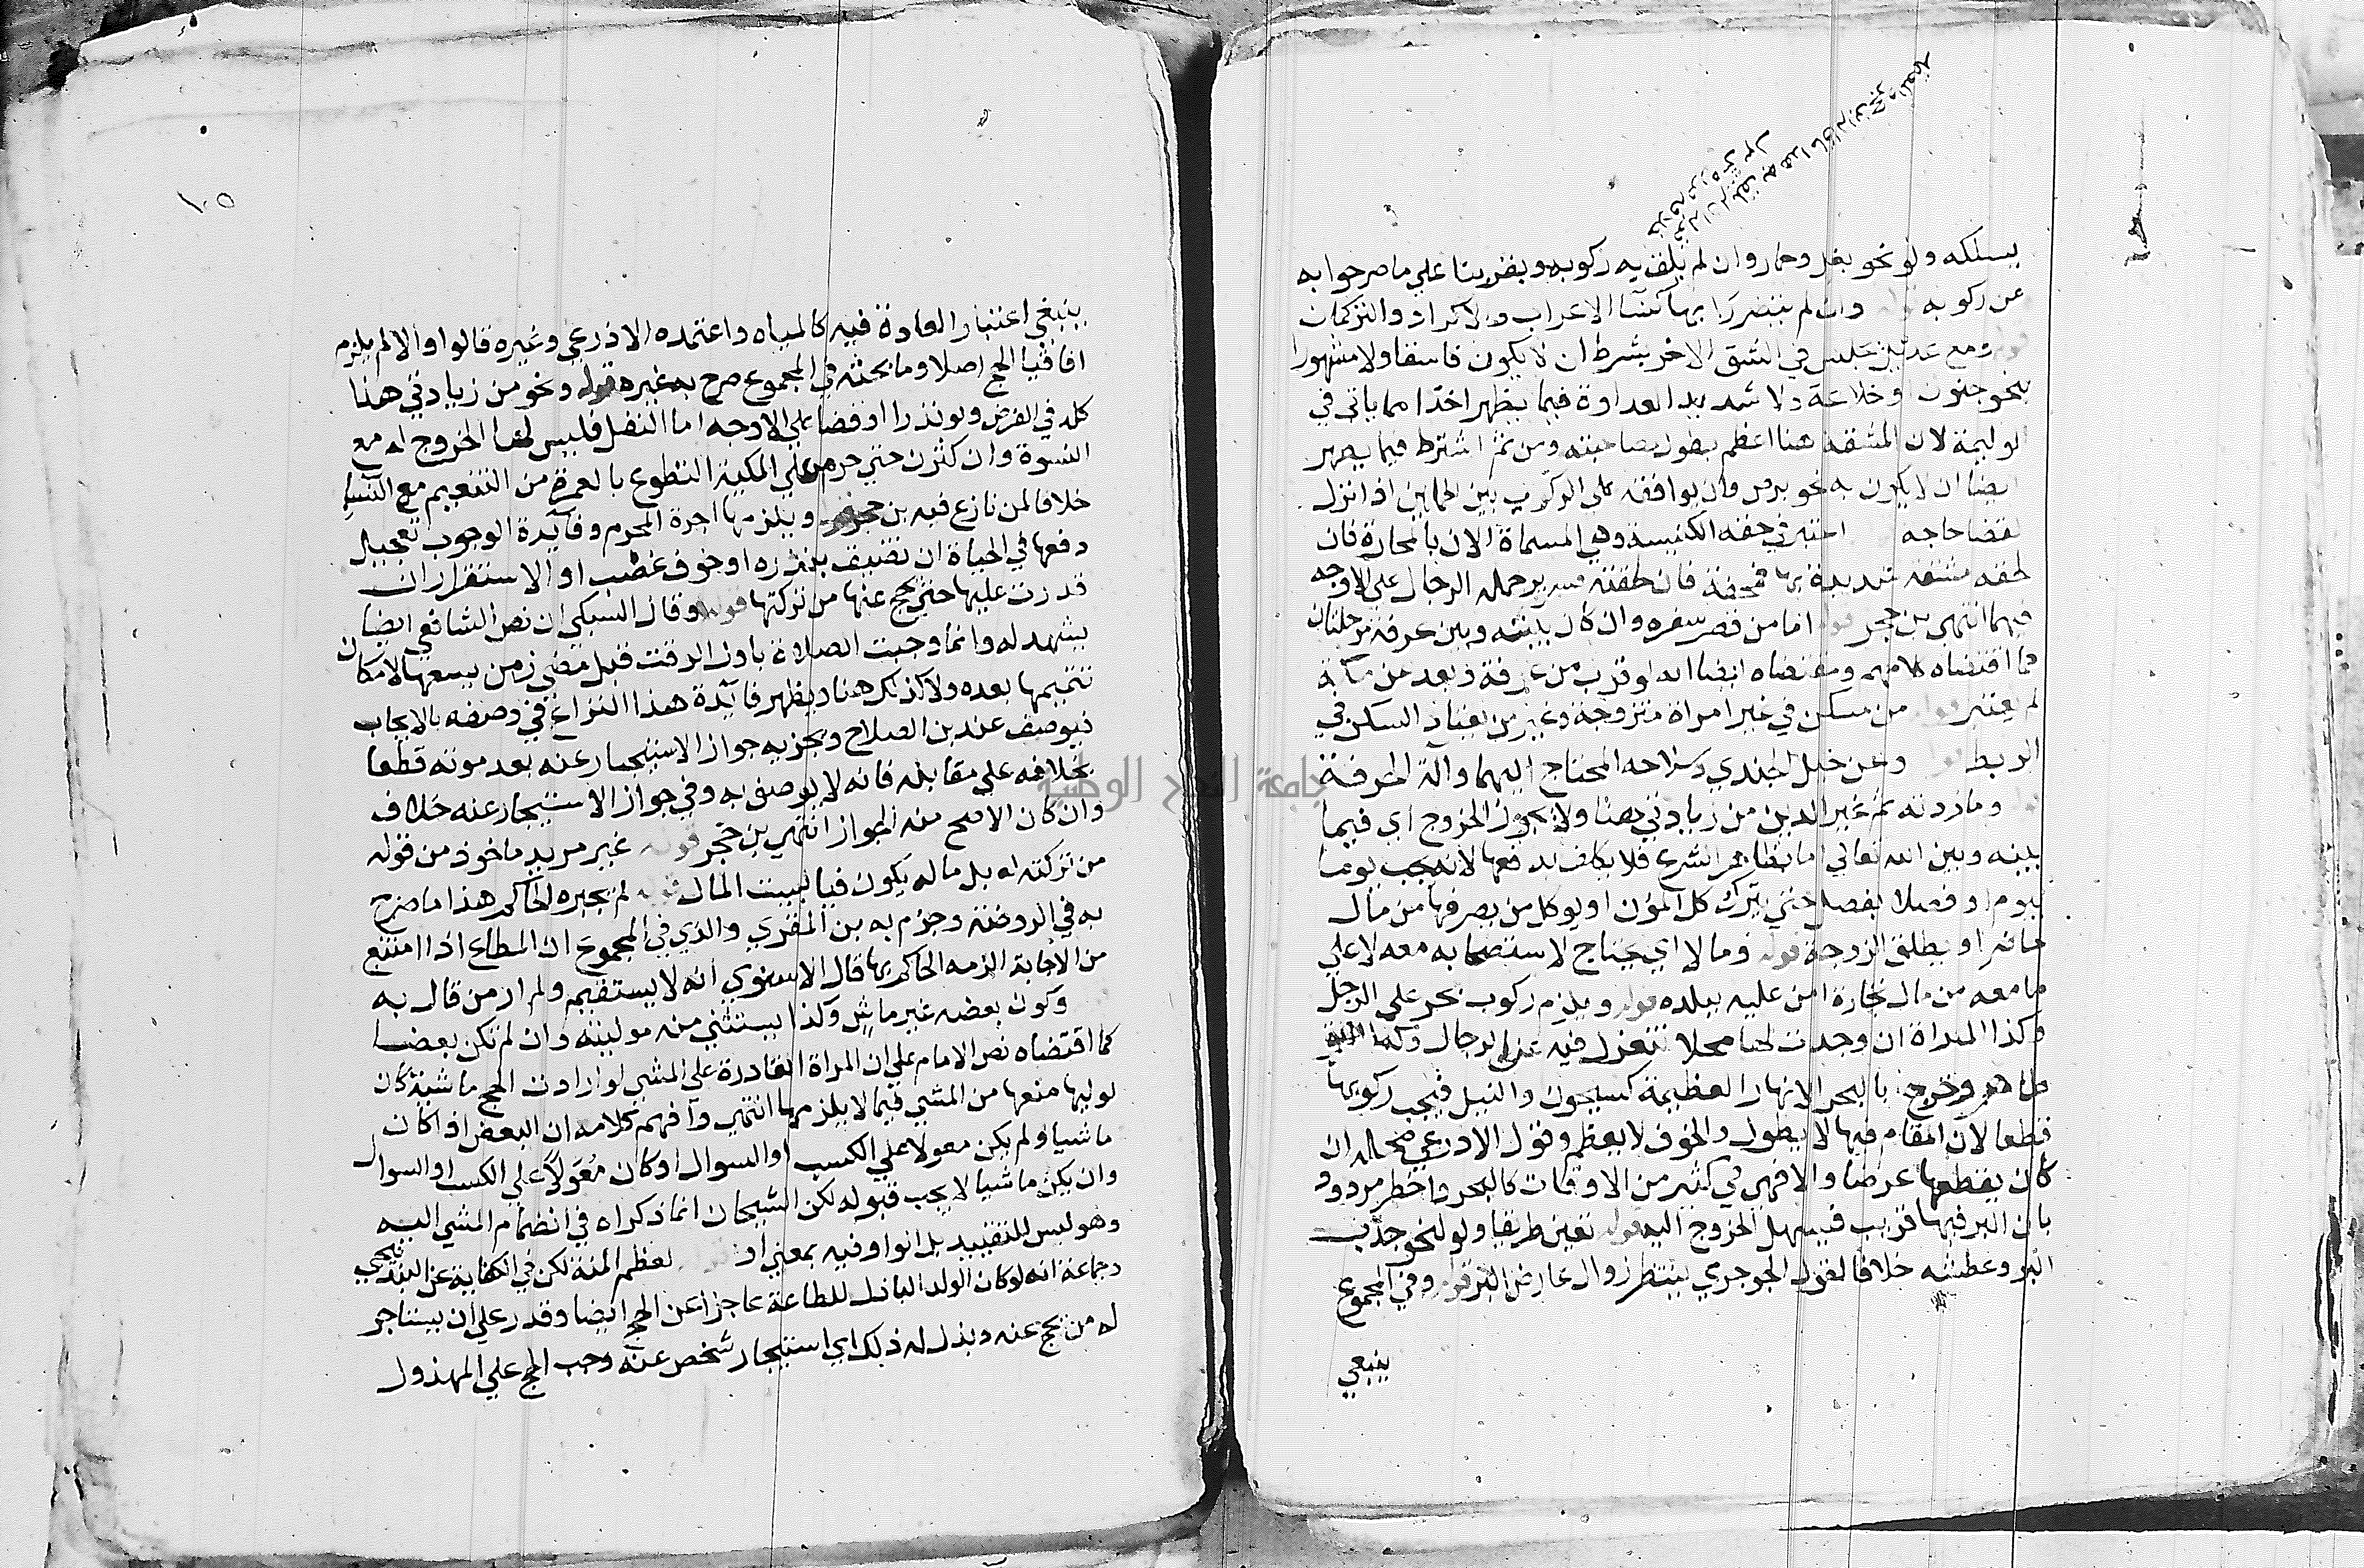 يسلكه ولو نحو بغل وحمار وان لم يلق به ركوبه ويفرق بنا علي ما صرحوا به
عن ركوبه وان لم يتضررا بها كنسا الاعراب والاكراد والتركمان
ومع عديل يجلس في الشق الاخر بشرط ان لا يكون فاسقا ولا مشهورا
بنحو جنون او خلاعة ولا شديد العداوة فيما يظهر اخذا مما ياتي في
الوليمة لان المشقة هنا اعظم بطول مصاحبته ومن ثم اشترط فيما يظهر
ايضا ان لا يكون به نحو برص وان يوافقه على الركوب بين المحملين اذا نزل
لقضا حاجه اعتبر في حقه الكنيسة وهي المسماة الان بالمحارة فان
لحقه مشقه شديدة بها فمحفة فان لحقته فسرير حمله الرجال على الاوجه
فيهما انتهى بن حجر قوله اما من قصر سفره وان كان بينه وبين عرفة مرحلتان
كما اقتضاه كلامهم ومقتضاه ايضا انه لو قرب من عرفة وبعد من مكة
لم يعتبر قوله من مسكن في غير امراة متزوجة وغير من يعتاد السكن في
الربط وعن خيل الجندي وسلاحه المحتاج اليهما وآلة المحرفة
وما زدته ثم غير الدين من زيادتي هنا ولا يجوز الخروج اي فيما
بينه وبين الله تعالي اما بظاهر الشرع فلا يكلف بدفعها لانه يجب يوما
بيوم او فصلا بفصل حتي يترك كل المؤن او يوكل من يصرفها من مال
حاضر او يطلق الزوجة قوله وما لا اي يحتاج لاستصحابه معه لا علي
ما معه من مال تجارة امن عليه ببلده قوله ويلزم ركوب بحر على الرجل
وكذا المراة ان وجدت لها محلا تنعزل فيه عن الرجال وكذا
وخرج بالبحر الانهار العظيمة كسيحون والنيل فيجب ركوبها
قطعا لان المقام فيها لا يطول والخوف لا يعظم وقول الاذرعي محله ان
كان يقطعها عرضا والا فهي في كثير من الاوقات كالبحر واخطر مردود
بان البر فيها قريب فيسهل الخروج اليه قوله تعين طريقا ولو لنحو جذب
البر وعطشه خلافا لقول الجوجري ينتظر زوال عارض البر قوله وفي المجموع
ينبغي
١٠٥
ينبغي اعتبار العادة فيه كالمياه واعتمده الاذرعي وغيره قالوا والا لم يلزم
افاقيا الحج اصلا وما بحثه في المجموع صرح به غيره قوله ونحو من زيادتي هذا
كله في الفرض ولو نذرا او قضا علي الاوجه اما النفل فليس لها الخروج له مع
النسوة وان كثرن حتي حرم علي المكية التطوع بالعمرة من التنعيم مع النسا
خلافا لمن نازع فيه بن حجر ويلزمها اجرة المحرم وفايدة الوجوب تعجيل
دفعها في الحياة ان تضيق بنذره او خوف غضب او الاستقرار ان
قدرت عليها حتي يحج عنها من تركتها قوله وقال السبكي ان نص الشافعي ايضا
يشهد له وانما وجبت الصلاة باول الوقت قبل مضي زمن يسعها لامكان
تتميمها بعده ولا كذلك هنا ويظهر فايدة هذا النزاع في وصفه بالايجاب
فيوصف عند بن الصلاح ونجزيه جواز الاستيجار عنه بعد موته قطعا
بخلافه علي مقابله فانه لا يوصف به وفي جواز الاستيجار عنه خلاف
وان كان الاصح منه الجواز انتهي بن حجر قوله غير مريد ماخوذ من قوله
من تركته له بل ماله يكون فيا لبيت المال قوله لم يجبره الحاكم هذا ما صرح
به في الروضة وجزم به بن المقري والذي في المجموع ان المطاع اذا امتنع
من الاجابة الزمه الحاكم بها قال الاسنوي انه لا يستقيم ولم ار من قال به
وكون بعضه غير ماش وكذا يستثني منه موليته وان لم تكن بعضا
كما اقتضاه نص الامام علي ان المراة القادرة علي المشي لو ارادت الحج ماشية كان
لوليها منعها من المشي فيما لا يلزمها انتهي وافهم كلامه ان البعض اذا كان
ماشيا ولم يكن معولا علي الكسب او السوال او كان معولا علي الكسب او السوال
وان يكن ماشيا لا يجب قبوله لكن الشيخان انما ذكراه في انضمام المشي اليه
وهو ليس للتقييد بل الواو فيه بمعني او لعظم المنة لكن في الكفاية عن البندنيجي
وجماعة انه لو كان الولد الباذل للطاعة عاجزا عن الحج ايضا وقدر علي ان يستاجر
له من يحج عنه وبذل له ذلك اي استيجار شخص عنه وجب الحج علي المبذول
جامعة النجاح الوطنية